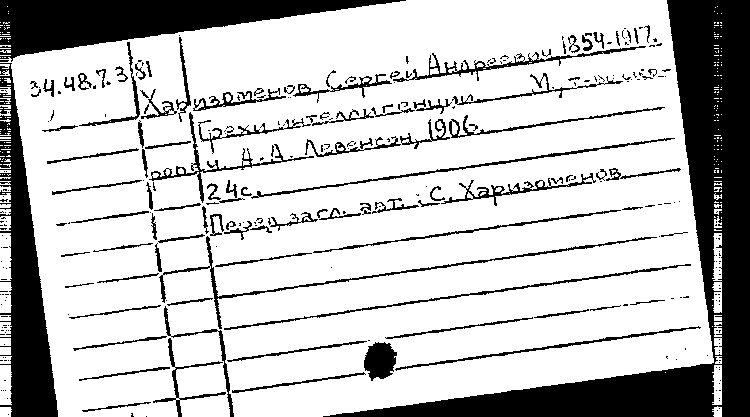 34.48.7.381
Харизоменов, Сергей Андреевич, 1854-1917.
Грехи интеллигенции. М., т-во ско-
ропеч. А.А. Левенсон, 1906.
24с.
Перед загл. авт.: С. Харизоменов